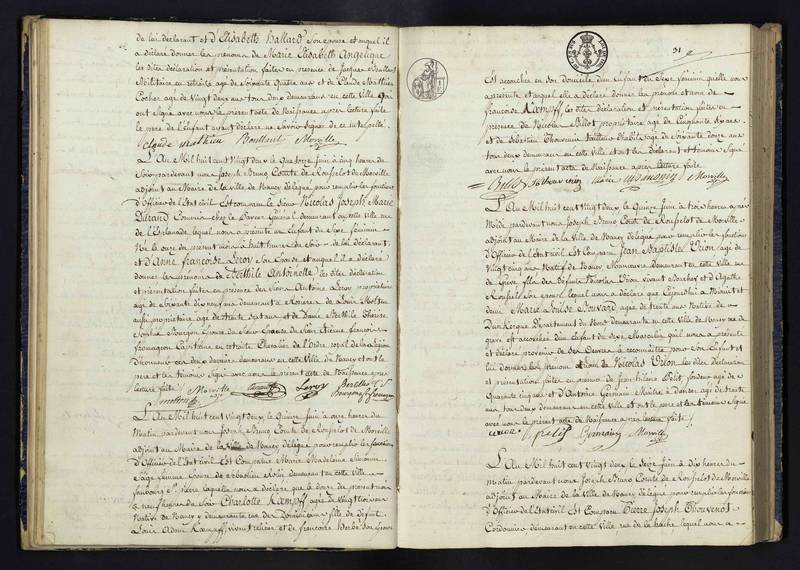 de lui déclarant et d'Elisabeth Ballard son epouse et auquel il
a déclaré donner les prénoms de Marie Elisabeth Angelique
les dites déclaration et présentation faites en présence de Jacques
Militaire en retraite agé de soixante quatre ans et de Claude Mathieu
agé de vingt deux ans tous deux demeurans en cette ville qui
ont signé avec nous le présent acte de Naissance après lecture faite
le pere de l'Enfant ayant déclaré ne savoir signer de ce interpellé
Claude Mathieu Morville
L'An Mil huit cent vingt deux le Quatorze juin à cinq heures du
Soir pardevant nous Joseph Bruno Comte de Rousselot de Morville
adjoint au Maire de la Ville de Nancy délégué pour remplir les fonctions
d'Officier de l'Etat civil Est comparu le Sieur Nicolas Joseph Marie
Durand demeurant en cette ville rue
de l'Esplanade lequel nous a présenté un Enfant du Sexe féminin
Né le onze du présent mois à huit heures du Soir de lui déclarant
et d'Anne françoise Leroy son Epouse et auquel il a déclaré
donner les prénoms de Mathilde Antoinette les dites déclaration
et présentation faites en présence des Sieurs Antoine Leroy propriétaire
agé de soixante dix neuf ans demeurant à Rosieres
aussi propriétaire agé de trente sept ans et de Dame
Sophie Bourgon Epouse du Sieur Etienne françois
fromageon Capitaine en retraite Chevalier de l'Ordre royal de la Légion
d'honneur ces deux derniers demeurans en cette Ville de Nancy et ont le
pere et les témoins signé avec nous le présent acte de Naissance après
lecture faite Morville Durand Leroy
L'An Mil huit cent vingt deux le Quinze juin à onze heures du
Matin pardevant nous Joseph Bruno Comte de Rousselot de Morville
adjoint au Maire de la Ville de Nancy délégué pour remplir les fonctions
d'Officier de l'Etat civil Est comparue Marie Madelaine
Sage femme Epouse de Sebastien demeurant en cette ville
faubourg St Pierre laquelle nous a déclaré que le douze du présent mois
à neuf heures du Soir Charlotte Kampff agée de vingt trois ans
Native de Nancy y demeurante rue des Dominicains fille de défunt
Louis Adam Kampff, vivant relieur, et de françoise
31
Est accouchée en son domicile d'un Enfant du Sexe féminin qu'elle nous
a présenté et auquel elle a déclaré donner les prénom et nom de
françoise Kampff les dites déclaration et présentation faites en
présence de Nicolas Billot propriétaire agé de Cinquante six ans
et de Sebastien Thouvenin tailleur d'habits agé de soixante douze ans
tous deux demeurans en cette ville et ont les déclarant et témoins signé
avec nous le présent acte de Naissance après lecture faite
Billot S Thouvenin Morville
L'An Mil huit cent vingt deux le Quinze juin à trois heures après
Midi pardevant nous Joseph Bruno Comte de Rousselot de Morville
adjoint au Maire de la Ville de Nancy délégué pour remplir les fonctions
d'Officier de l'Etat civil Est comparu Jean Baptiste Urion agé de
vingt cinq ans Natif de Nancy Manoeuvre demeurant en cette Ville rue
de Grève fils des défunts Nicolas Urion vivant Boucher et d'Agathe
son epouse lequel nous a déclaré que Cejourd'hui à Minuit et
demi Marie Louise Bouvard agée de trente ans Native de
Dunkerque Département du Nord demeurante en cette Ville de Nancy rue de
grève est accouchée d'un Enfant du Sexe Masculin qu'il nous a présenté
et déclaré provenir de ses œuvres le reconnaître pour son Enfant et
lui donner les prénom et nom de Nicolas Urion les dites déclaration
et présentation faites en présence de Jean Petit, fondeur agé de
Quarante cinq ans et d'Antoine Germain Maitre à Danser agé de trente
ans tous deux demeurans en cette Ville et ont le pere et les témoins signé
avec nous le présent acte de Naissance après lecture faite
urion Petit Germain Morville
L'An Mil huit cent vingt deux le Seize juin à dix heures du
Matin pardevant nous Joseph Bruno Comte de Rousselot de Morville
adjoint au Maire de la Ville de Nancy délégué pour remplir les fonctions
d'Officier de l'Etat civil Est comparu Pierre Joseph Thouvenot
Cordonnier demeurant en cette Ville, rue de la hache lequel nous a